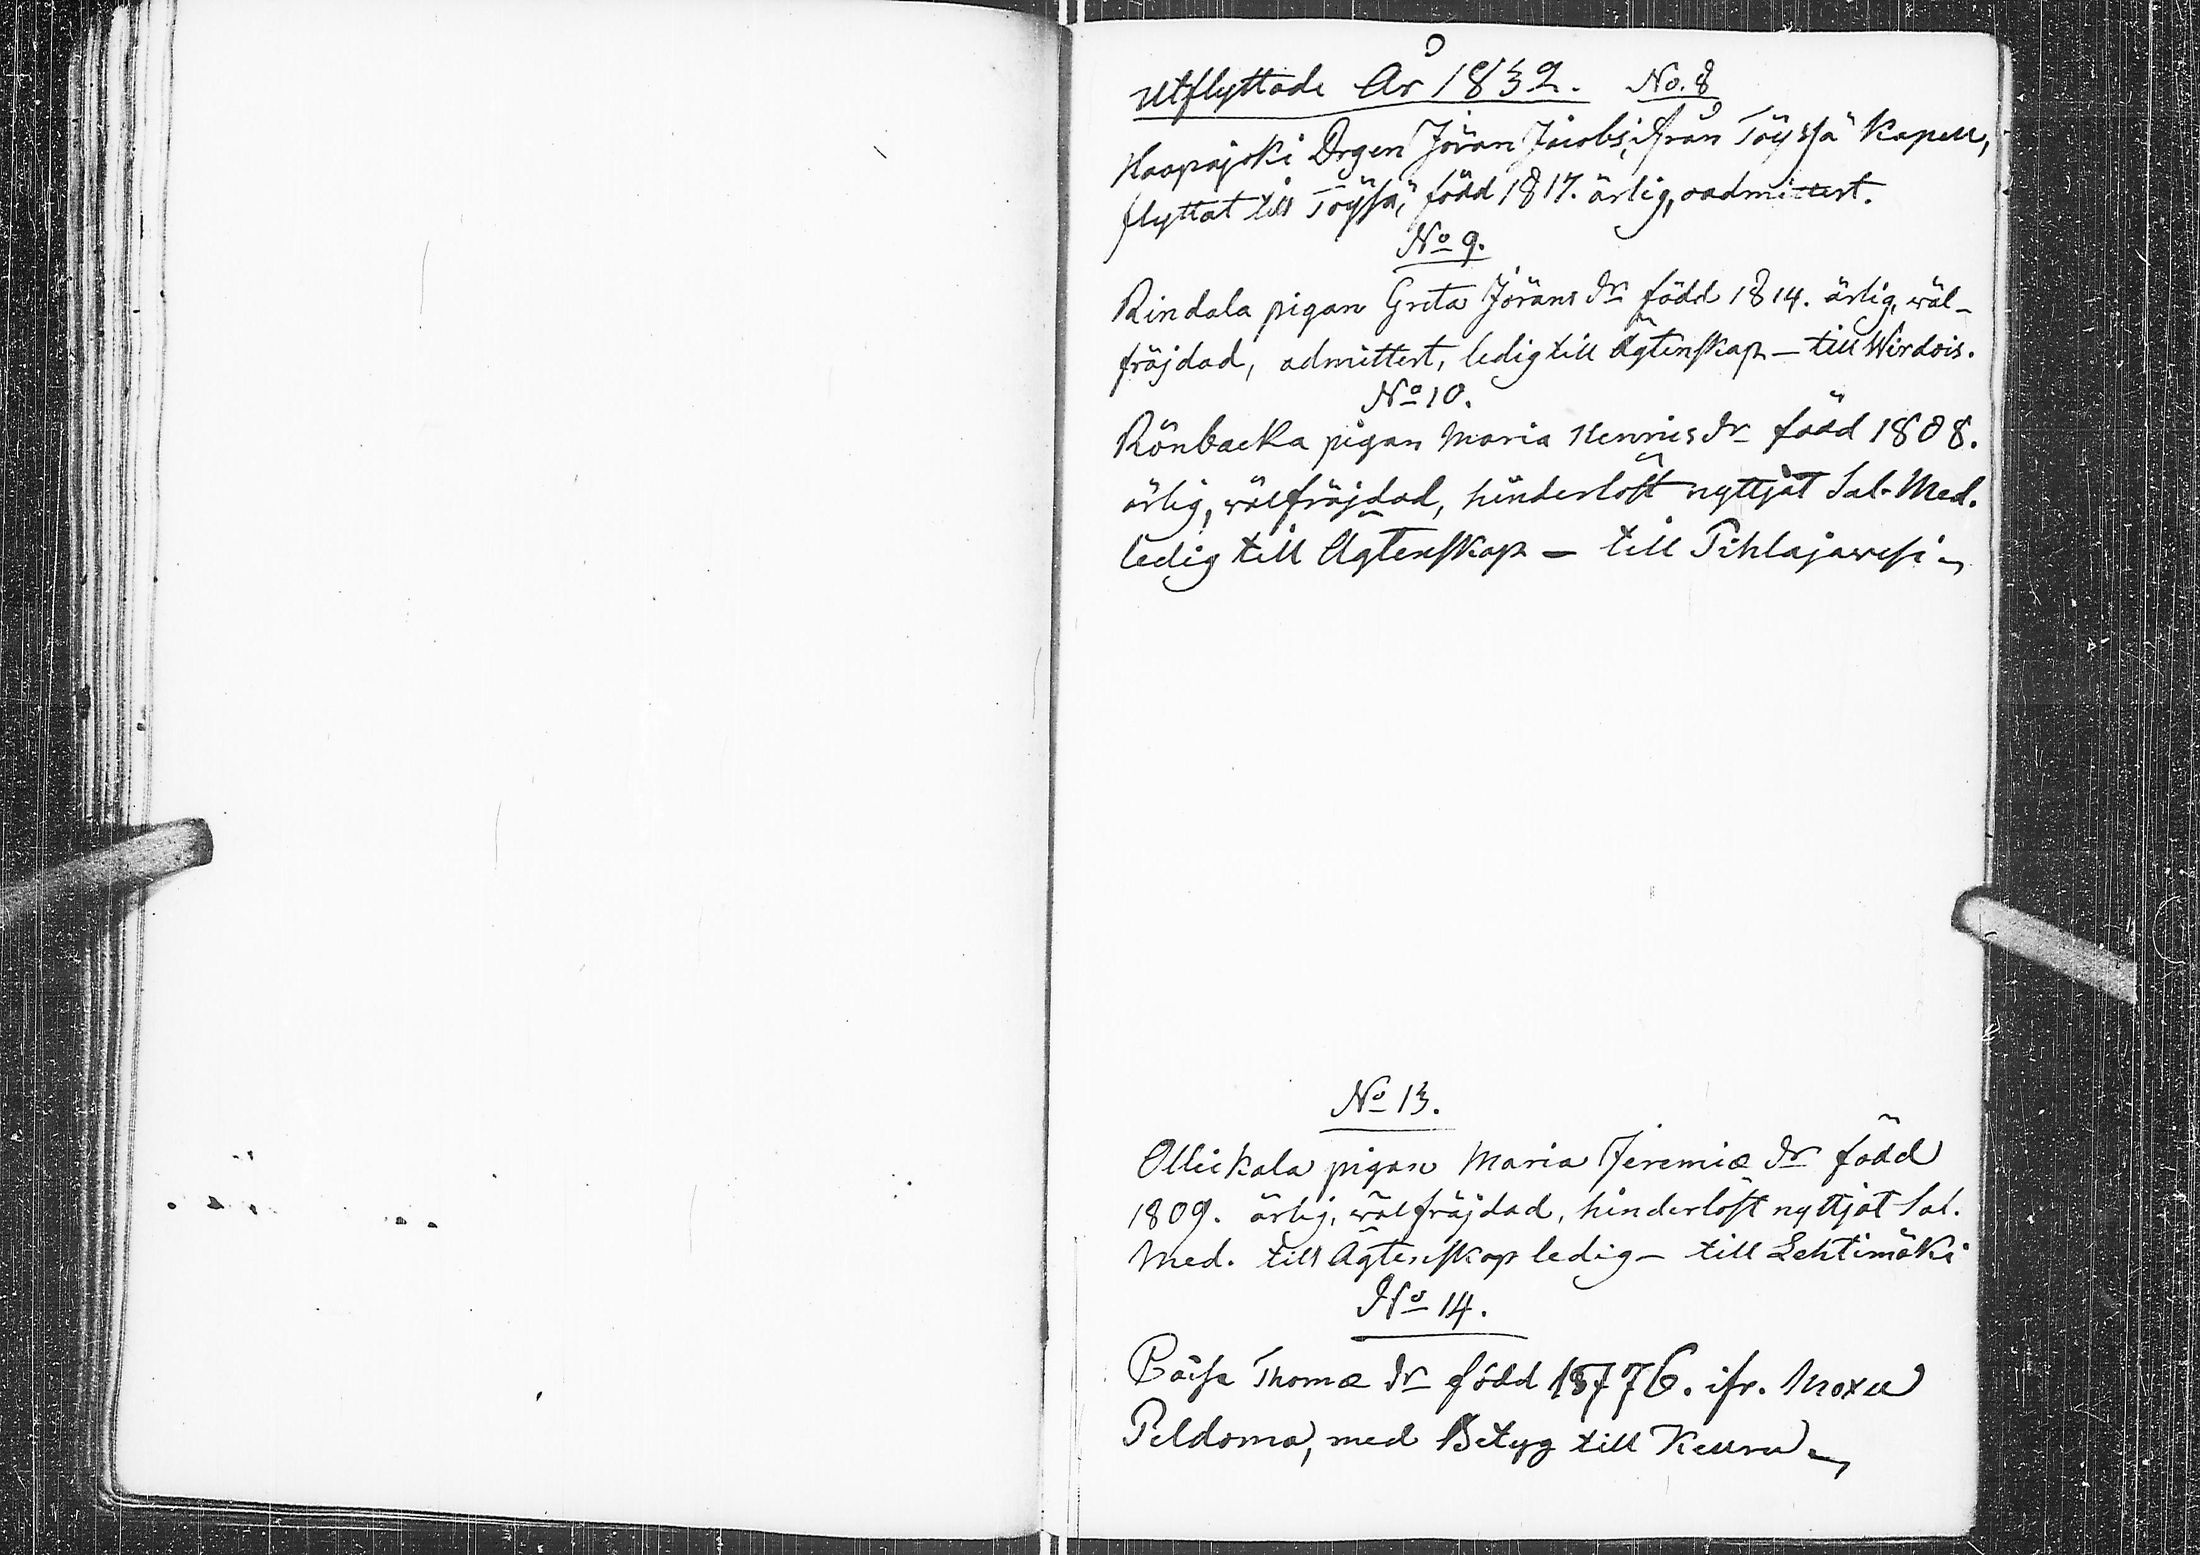 Utflyttade År 1832. No. 8
Haapajoki Drgen Jöran Jacobs, ifrån Töyssä Kapell,
flyttat till Töyssä, född 1817. ärlig, oadmittert.
No 9.
Rindala pigan Greta Jörans dr född 1814. ärlig, wäl-
fräjdad, admittert, ledig till Ägtenskap – till Wirdois.
No 10.
Rönbacka pigan Maria Henrics dr född 1808.
ärlig, wälfräjdad, hinderlöst nyttjat Sal. Med.
ledig till Ägtenskap – till Pihlajawesi
No 13.
Ollikala pigan Maria Jeremiæ dr född
1809. ärlig, wälfräjdad, hinderlöst nyttjat Sal.
Med. till Ägtenskap ledig – till Lehtimäki
No 14.
Caisa Thomæ dr född 1776. ifr.
Peldoma, med Betyg till Keuru